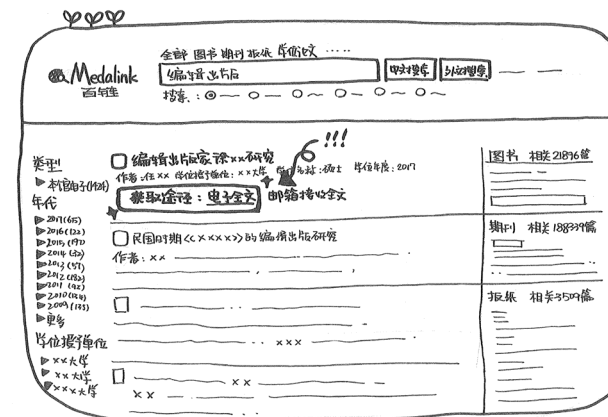 全部 图书 期刊 报纸 学位论文 ……
Medalink
百链
编辑出版
中文搜索 外文搜索
搜索：
类型
本馆电子(1424)
年代
2017(65)
2016(122)
2015(191)
2014(132)
2013(157)
2012(182)
2011(192)
2010(164)
2009(133)
更多
学位授予单位
××大学
××大学
×××大学
!!!
编辑出版家徐××研究
作者：任×× 学位授予单位：××大学 学位名称：硕士 学位年度：2017
获取途径：电子全文 邮箱接收全文
民国时期《××××》的编辑出版研究
作者：××
×××
××
××
图书 相关21896篇
期刊 相关188339篇
报纸 相关3509篇